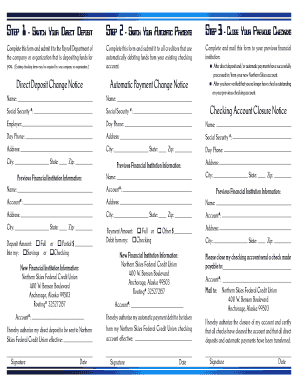 Step 1 - Switch Your Direct Deposit
Complete this form and submit it to the Payroll Department of
the company or organization that is depositing funds for
you.
Direct Deposit Change Notice
Name:
Social Security #:
Employer:
Day Phone:
Address:
City: State: Zip:
Previous Financial Institution Information:
Name:
Account#:
Address:
City: State: Zip:
Deposit Amount: Full or Partial $
Into my: Savings or Checking
New Financial Institution Information:
Northern Skies Federal Credit Union
400 W Benson Boulevard
Anchorage, Alaska 99503
Routing# 325272287
Account#:
I hereby authorize my direct deposits to be sent to Northern
Skies Federal Credit Union effective
Signature Date
Step 2 - Switch Your Automatic Payments
Complete this form and submit it to all creditors that are
automatically debiting funds from your existing checking
account.
Automatic Payment Change Notice
Name:
Social Security #:
Day Phone:
Address:
City: State: Zip:
Previous Financial Institution Information:
Name:
Account#:
Address:
City: State: Zip:
Payment Amount: Full or Other $
Debit from my: Checking
New Financial Institution Information:
Northern Skies Federal Credit Union
400 W Benson Boulevard
Anchorage, Alaska 99503
Routing# 325272287
Account#:
I hereby authorize my automatic payment debit to be taken
from my Northern Skies Federal Credit Union checking
account effective
Signature Date
Step 3 - Close Your Previous Checking
Complete and mail this form to your previous financial
institution:
After direct deposit and/or automatic payments have successfully
processed to/from your new Northern Skies account.
After you have verified that you no longer have checks outstanding
on your previous checking account.
Checking Account Closure Notice
Name:
Social Security #:
Day Phone:
Address:
City: State: Zip:
Previous Financial Institution Information:
Name:
Account#:
Address:
City: State: Zip:
Please close my checking account and send a check made
payable to:
Account#:
Mail to: Northern Skies Federal Credit Union
400 W Benson Boulevard
Anchorage, Alaska 99503
I hereby authorize the closure of my account and certify
that all checks have cleared the account and that all direct
deposits and automatic payments have been transferred.
Signature Date